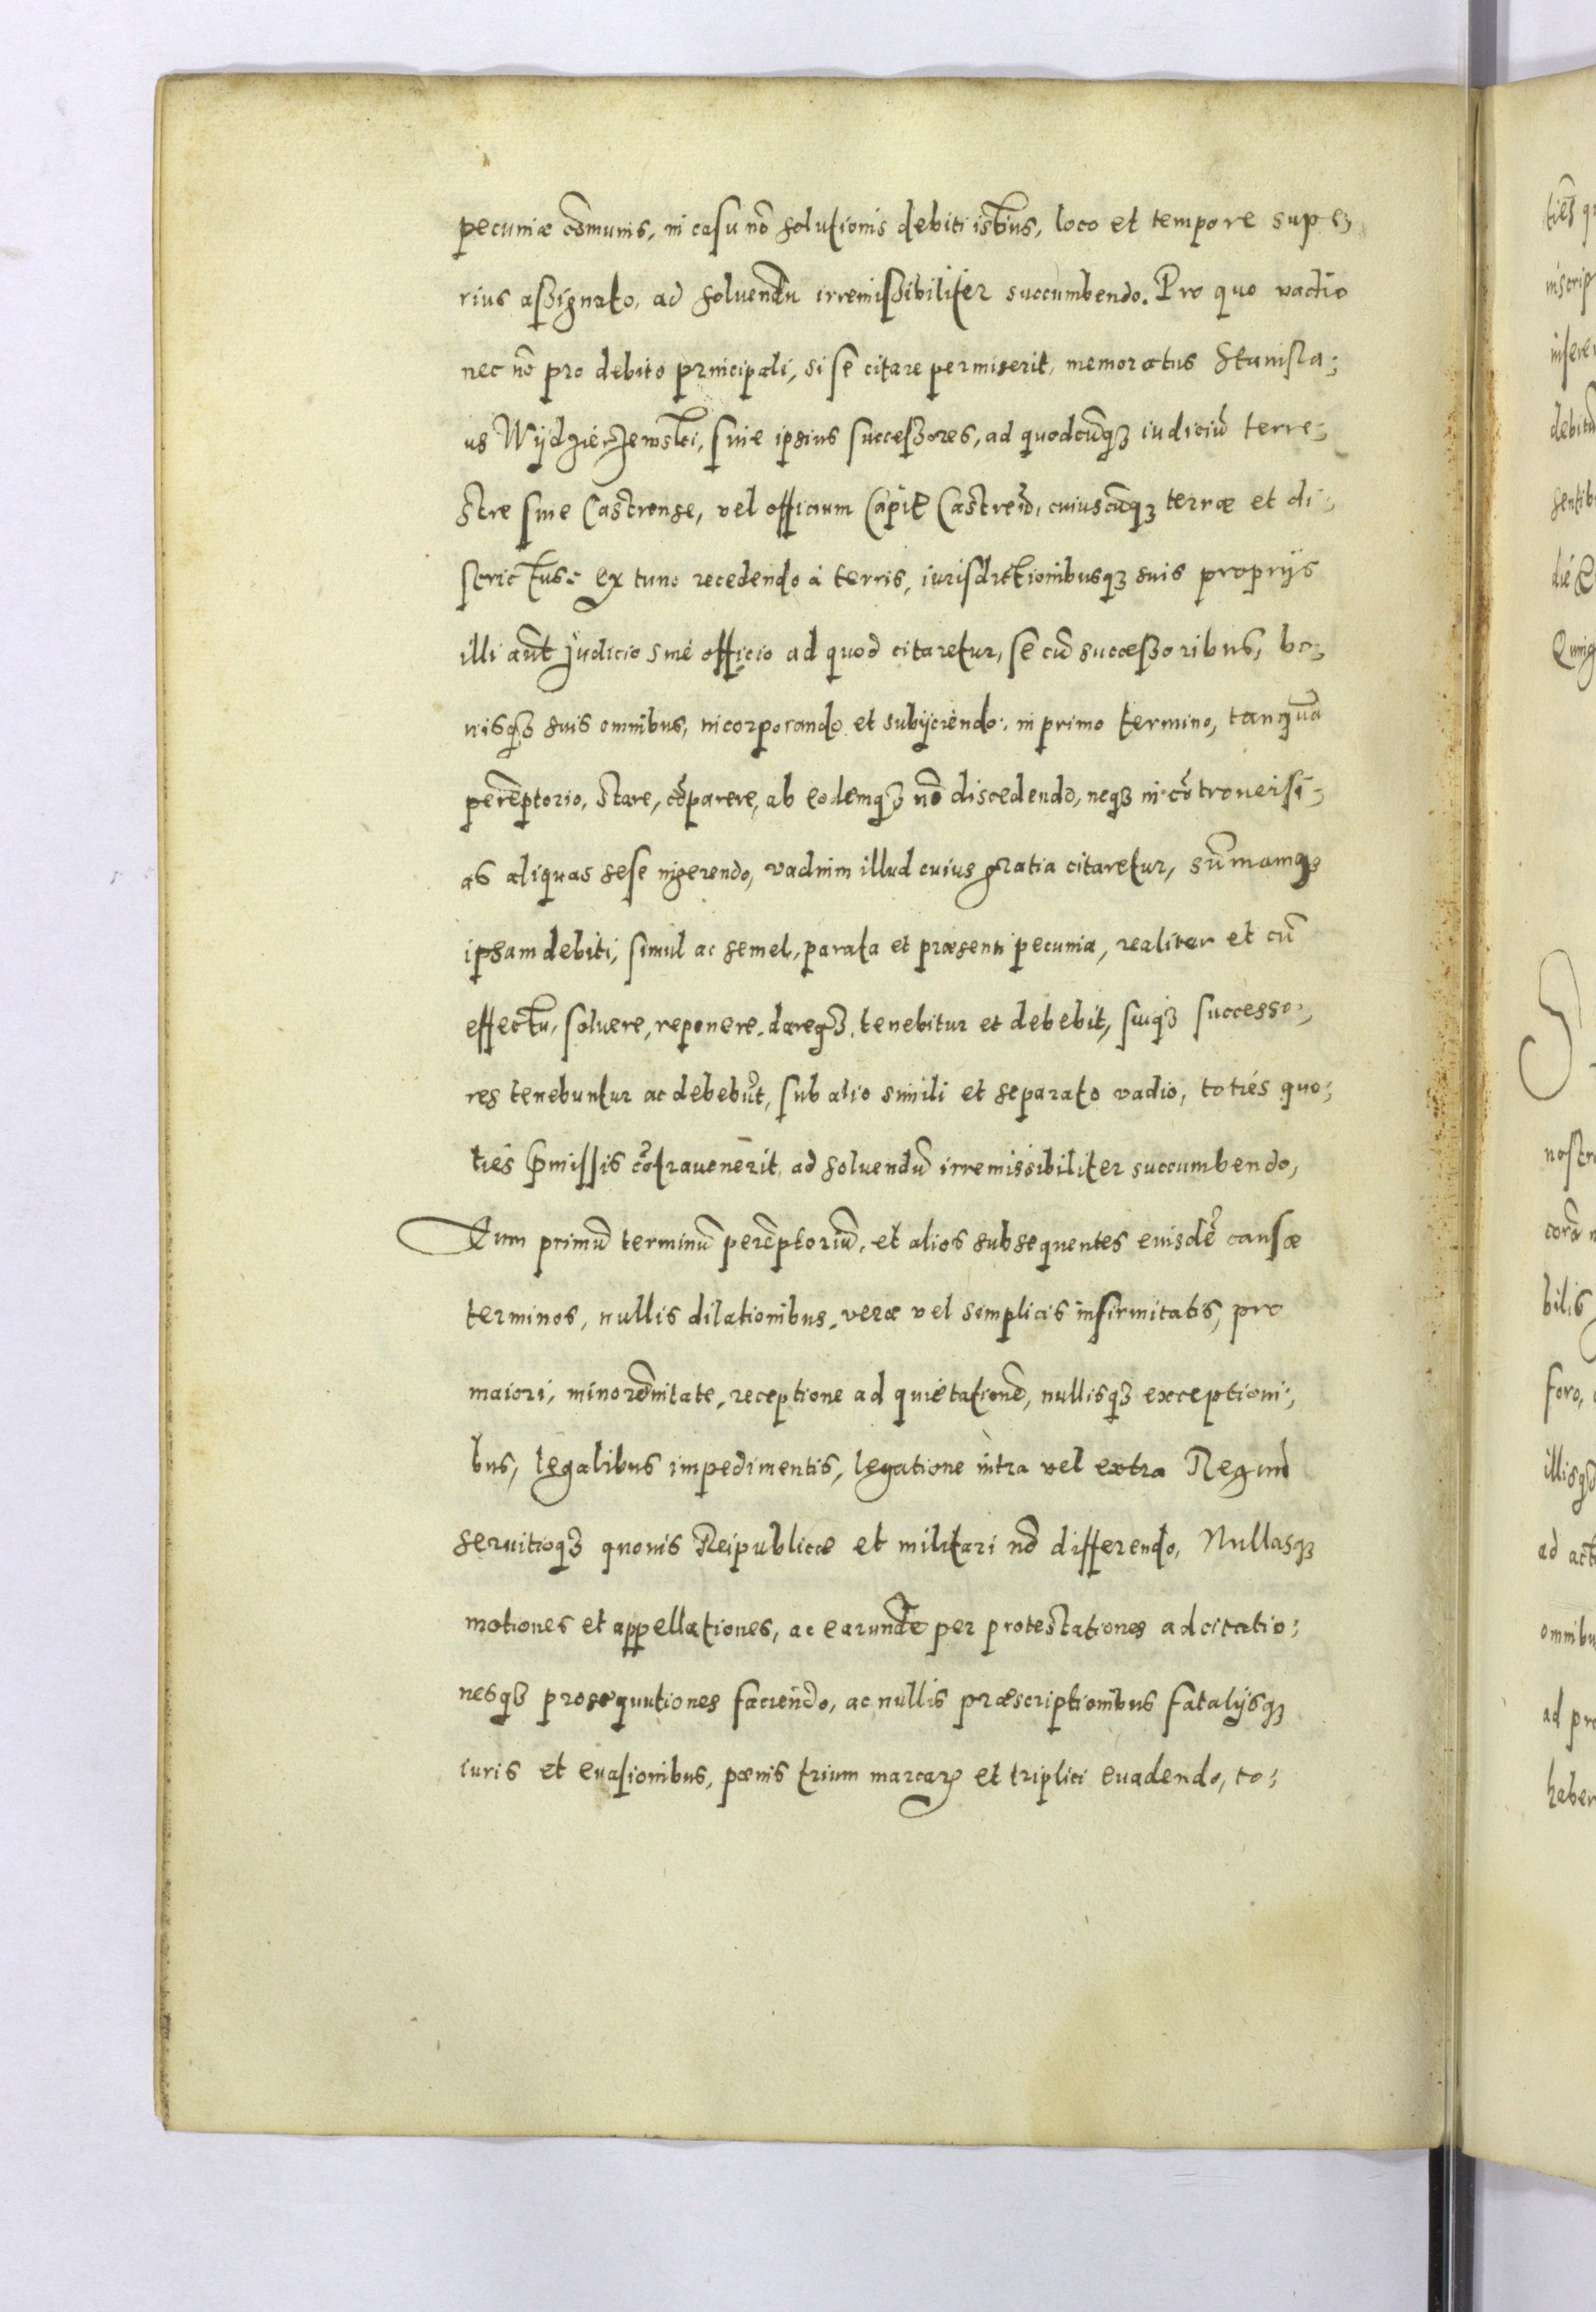 pecuniæ cõmunis, in casu nõ solutionis debiti istius, loco et tempore supe⸗
rius assignato, ad soluendũ irremissibiliter succumbendo. Pro quo vadio
nec nõ pro debito principali, si se citare permiserit, memoratus Stanisla⸗
us Wijdzierzewski, siue ipsius successores, ad quodcũqꝫ iudiciũ terre⸗
stre siue Castrense, vel officium Capit Castreñ, cuiuscũqꝫ terræ et di⸗
strictus: ex tunc recedendo à terris, iurisdictionibusqꝫ suis proprijs
illi aũt Judicio siue officio ad quod citaretur, se cũ successoribus, bo⸗
nisqꝫ suis omnibus, incorporando et subijciendo: in primo termino, tanquã
perẽptorio, stare, cõparere, ab eodemqꝫ nõ discedendo, neqꝫ in cõtrouersi⸗
as aliquas sese ingerendo, vadium illud cuius gratia citaretur, sũmamqꝫ
ipsam debiti, simul ac semel, parata et præsenti pecunia, realiter et cũ
effectu, soluere, reponere, dareqꝫ, tenebitur et debebit, suiqꝫ successo⸗
res tenebuntur ac debebũt, sub alio simili et separato vadio, toties quo⸗
ties p̃missis cõtrauenerit, ad soluendũ irremissibiliter succumbendo,
Eum primũ terminũ perẽptoriũ, et alios subsequentes eiusdẽ causæ
terminos, nullis dilationibus, veræ vel simplicis infirmitatis, pro
maiori, minorẽnitate, receptione ad quietationẽ, nullisqꝫ exceptioni⸗
bus, legalibus impedimentis, legatione intra vel extra Regnũ
seruitioqꝫ quouis Reipublicæ et militari nõ differendo, Nullasqꝫ
motiones et appellationes, ac earundẽ per protestationes adcitatio⸗
nesqꝫ prosequutiones faciendo, ac nullis præscriptionibus fatalijsqꝫ
iuris et euasionibus, pœnis trium marcarꝝ et triplici euadendo, to⸗